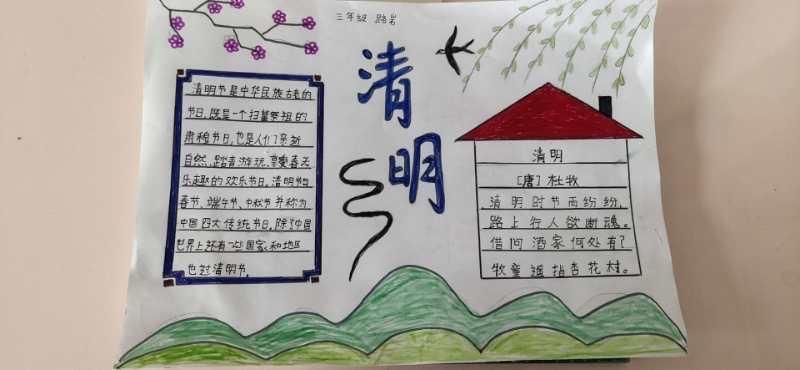 三年级 路岩
清明
清明节是中华民族古老的
节日，既是一个扫墓祭祖的
肃穆节日，也是人们亲近
自然、踏青游玩、享受春天
乐趣的欢乐节日，清明节与
春节、端午节、中秋节并称为
中国四大传统节日，除了中国
世界上还有一些国家和地区
也过清明节。
清明
[唐]杜牧
清明时节雨纷纷，
路上行人欲断魂。
借问酒家何处有？
牧童遥指杏花村。